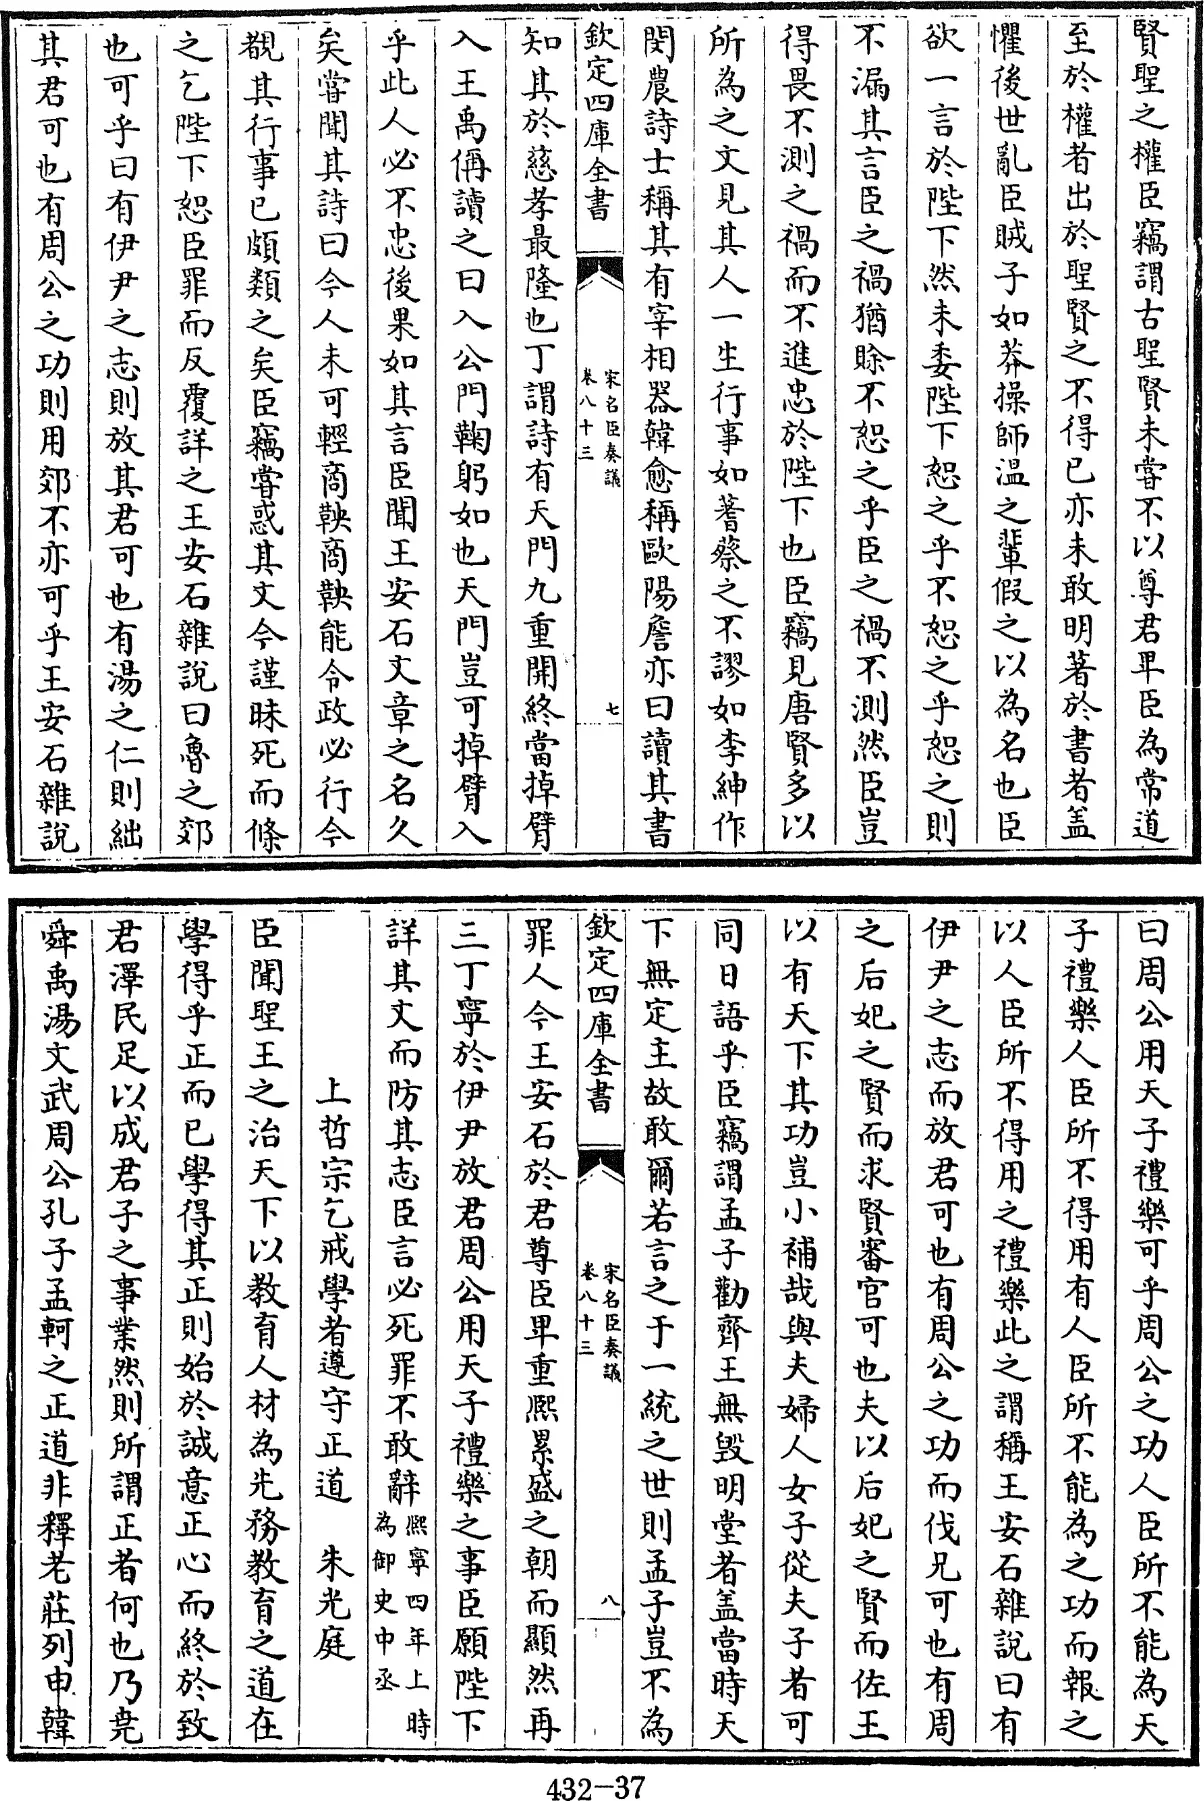 賢聖之權臣竊謂古聖賢未嘗不以尊君卑臣為常道
至於權者出於聖賢之不得已亦未敢明著於書者盖
懼後世亂臣賊子如莽操師温之輩假之以為名也臣
欲一言於陛下然未委陛下恕之乎不恕之乎恕之則
不漏其言臣之禍猶賒不恕之乎臣之禍不測然臣豈
得畏不測之禍而不進忠於陛下也臣竊見唐賢多以
所為之文見其人一生行事如蓍蔡之不謬如李紳作
閔農詩士稱其有宰相器韓愈稱歐陽詹亦曰讀其書
欽定四庫全書
宋名臣奏議
卷八十三
七
知其於慈孝最隆也丁謂詩有天門九重開終當掉臂
入王禹偁讀之曰入公門鞠躬如也天門豈可掉臂入
乎此人必不忠後果如其言臣聞王安石文章之名久
矣嘗聞其詩曰今人未可輕商鞅商鞅能令政必行今
覩其行事已頗類之矣臣竊嘗惑其文今謹昧死而條
之乞陛下恕臣罪而反覆詳之王安石雜說曰魯之郊
也可乎曰有伊尹之志則放其君可也有湯之仁則絀
其君可也有周公之功則用郊不亦可乎王安石雜說
曰周公用天子禮樂可乎周公之功人臣所不能為天
子禮樂人臣所不得用有人臣所不能為之功而報之
以人臣所不得用之禮樂此之謂稱王安石雜說曰有
伊尹之志而放君可也有周公之功而伐兄可也有周
之后妃之賢而求賢審官可也夫以后妃之賢而佐王
以有天下其功豈小補哉與夫婦人女子從夫子者可
同日語乎臣竊謂孟子勸齊王無毁明堂者盖當時天
下無定主故敢爾若言之于一統之世則孟子豈不為
欽定四庫全書
宋名臣奏議
卷八十三
八
罪人今王安石於君尊臣卑重熈累盛之朝而顯然再
三丁寧於伊尹放君周公用天子禮樂之事臣願陛下
詳其文而防其志臣言必死罪不敢辭熈寧四年上時
為御史中丞
上哲宗乞戒學者遵守正道　朱光庭
臣聞聖王之治天下以教育人材為先務教育之道在
學得乎正而已學得其正則始於誠意正心而終於致
君澤民足以成君子之事業然則所謂正者何也乃堯
舜禹湯文武周公孔子孟軻之正道非釋老莊列申韓
432-37